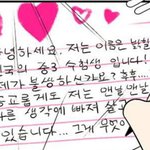 녕하세요. 저는 이름은 밝힐
국의 중3 수험생 입니다.
제가 불성하신가요? 훌훌....
롭게도 저는 맨날맨날
른 생각에 빠져 살
있습니다... 그게 무엇